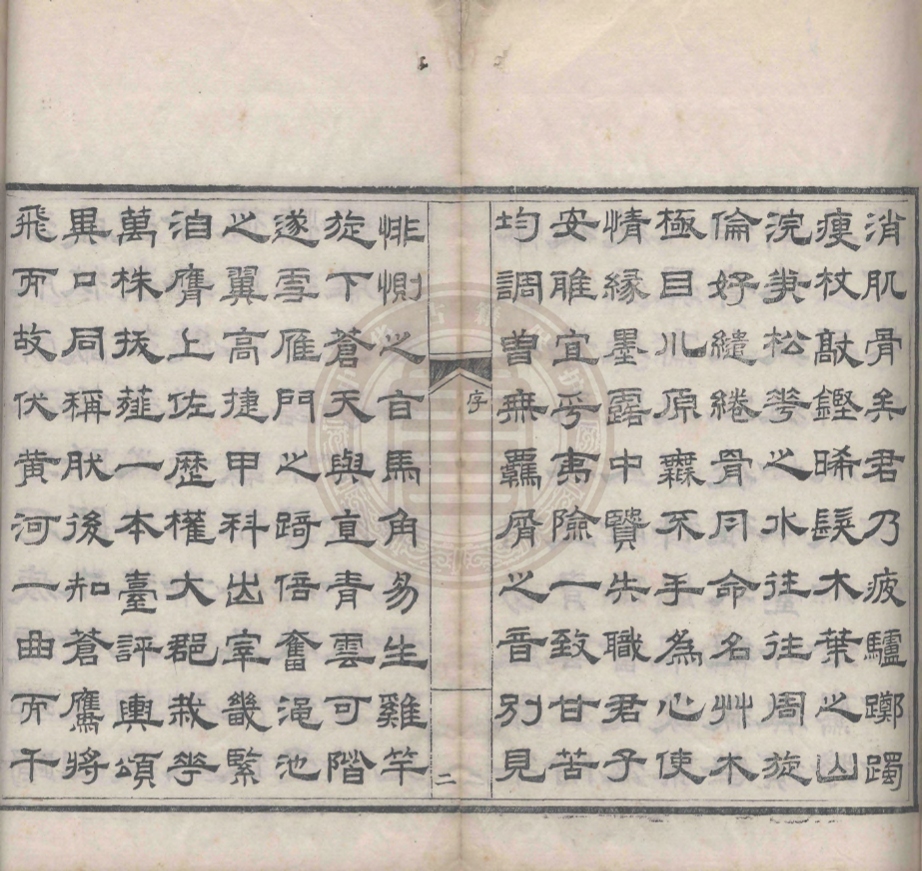 消肌骨矣君乃疲驢躑躅
瘦杖敲鏗晞髮木葉之山
浣筆松花之水往往周旋
倫好繾綣骨肉命名艸木
極目川原無不手為心使
情緣墨露中贒失職君子
安雎宜乎夷險一致甘苦
均調曾無羈屑之音別見
序
二
悱惻之言馬角易生雞竿
旋下蒼天與直青雲可階
遂雪雁門之踦倍奮澠池
之翼高捷甲科出宰畿緊
洎膺上佐歷權大郡栽花
萬株拔薤一本臺評輿頌
異口同稱肰後知蒼鷹將
飛而故伏黄河一曲而千